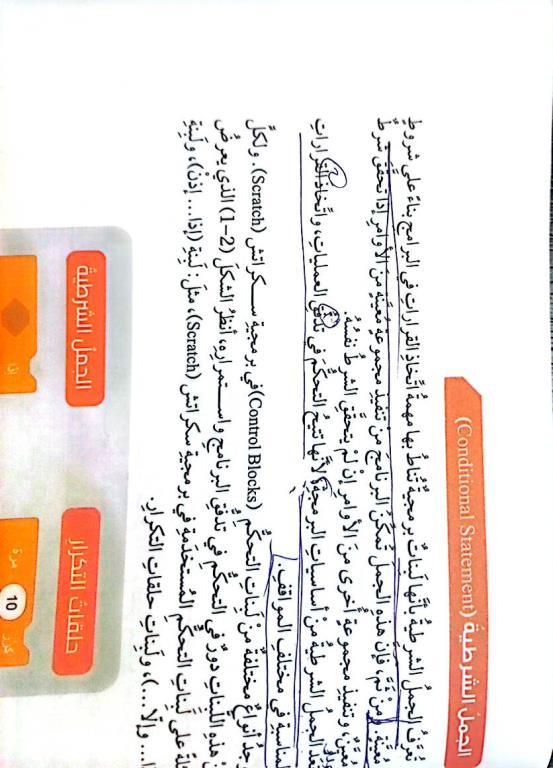 الجمل الشرطية (Conditional Statement)
تُعَرَّفُ الجملُ الشرطيةُ بأنَّها لَبِناتٌ برمجيةٌ تُناطُ بها مهمةُ اتِّخاذِ القراراتِ في البرامجِ بناءً على شروطٍ
مُعيَّنةٍ، ومِنْ ثَمَّ، فإنَّ هذهِ الجملَ تُمكِّنُ البرنامجَ مِنْ تنفيذِ مجموعةٍ مُعيَّنةٍ مِنَ الأوامرِ إذا تحقَّقَ شرطٌ
مُعيَّنٌ، وتنفيذِ مجموعةٍ أُخرى مِنَ الأوامرِ إنْ لَمْ يتحقَّقِ الشرطُ نفسُهُ.
تُعَدُّ الجملُ الشرطيةُ مِنْ أساسياتِ البرمجةِ؛ لأنَّها تتيحُ التحكُّمَ في تدفُّقِ العملياتِ، واتِّخاذَ القراراتِ
المناسبةِ في مختلفِ المواقفِ.
أنواعٌ مختلفةٌ مِنْ لَبِناتِ التحكُّمِ (Control Blocks) في برمجيةِ سكراتش (Scratch). ولكلٍّ
مِنْ هذهِ اللَّبِناتِ دورٌ في التحكُّمِ في تدفُّقِ البرنامجِ واستمرارِهِ، أنظرُ الشكلَ (2-1) الذي يعرضُ
على لَبِناتِ التحكُّمِ المُستخدَمةِ في برمجيةِ سكراتش (Scratch)، مثلَ: لَبِنةِ (إذا... إذنْ)، ولَبِنةِ
... وإلّا...)، ولَبِناتِ حلقاتِ التكرارِ.
الجمل الشرطية
حلقات التكرار
إذا
كرِّر 10 مرة